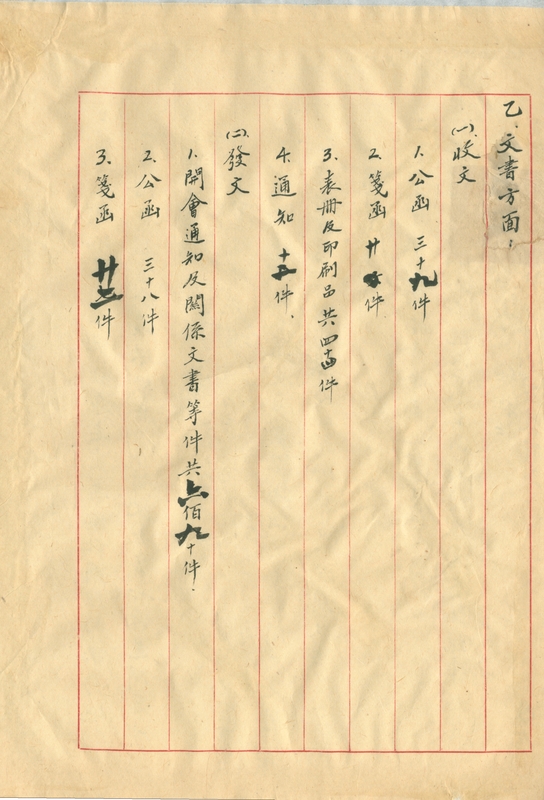 乙．文書方面：
(一)．收文
1．公函 三十九件
2．箋函 廿 件
3．表冊及印刷品共四十 件
4．通知 十五件．
(二)．發文
1．開會通知及關係文書等件共六佰九十件．
2．公函 三十八件
3．箋函 廿七件